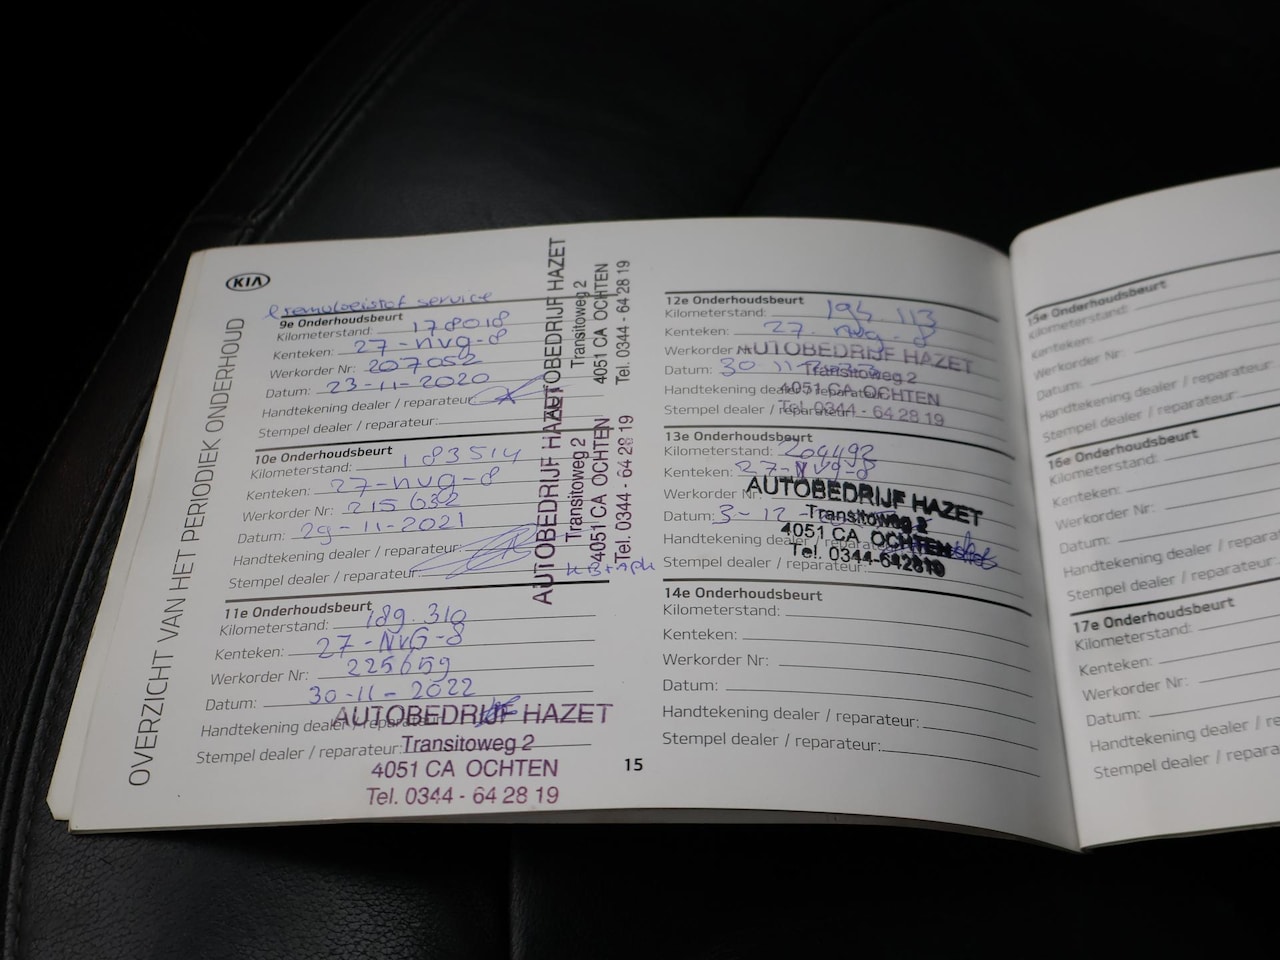 KIA
OVERZICHT VAN HET PERIODIEK ONDERHOUD
remvloeistof service
9e Onderhoudsbeurt
Kilometerstand: 178018
Kenteken: 27-nvg-8
Werkorder Nr: 207052
Datum: 23-11-2020
Handtekening dealer / reparateur:
Stempel dealer / reparateur:
AUTOBEDRIJF HAZET
Transitoweg 2
4051 CA OCHTEN
Tel. 0344 - 64 28 19
10e Onderhoudsbeurt
Kilometerstand: 183514
Kenteken: 27-nvg-8
Werkorder Nr: 215632
Datum: 29-11-2021
Handtekening dealer / reparateur:
Stempel dealer / reparateur:
AUTOBEDRIJF HAZET
Transitoweg 2
4051 CA OCHTEN
Tel. 0344 - 64 28 19
11e Onderhoudsbeurt
Kilometerstand: 189.310
Kenteken: 27-NVG-8
Werkorder Nr: 225659
Datum: 30-11-2022
Handtekening dealer / reparateur:
Stempel dealer / reparateur:
AUTOBEDRIJF HAZET
Transitoweg 2
4051 CA OCHTEN
Tel. 0344 - 64 28 19
15
12e Onderhoudsbeurt
Kilometerstand: 194.113
Kenteken: 27-nvg-8
Werkorder Nr:
Datum: 30-11-
Handtekening dealer / reparateur:
Stempel dealer / reparateur:
AUTOBEDRIJF HAZET
Transitoweg 2
4051 CA OCHTEN
Tel. 0344 - 64 28 19
13e Onderhoudsbeurt
Kilometerstand: 204492
Kenteken: 27-NVG-8
Werkorder Nr:
Datum: 3-12-
Handtekening dealer / reparateur:
Stempel dealer / reparateur:
AUTOBEDRIJF HAZET
Transitoweg 2
4051 CA OCHTEN
Tel. 0344-642819
14e Onderhoudsbeurt
Kilometerstand:
Kenteken:
Werkorder Nr:
Datum:
Handtekening dealer / reparateur:
Stempel dealer / reparateur:
15e Onderhoudsbeurt
Kilometerstand:
Kenteken:
Werkorder Nr:
Datum:
Handtekening dealer / reparateur:
Stempel dealer / reparateur:
16e Onderhoudsbeurt
Kilometerstand:
Kenteken:
Werkorder Nr:
Datum:
Handtekening dealer /
Stempel dealer / reparateur:
17e Onderhoudsbeurt
Kilometerstand:
Kenteken:
Werkorder Nr:
Datum:
Handtekening dealer /
Stempel dealer /